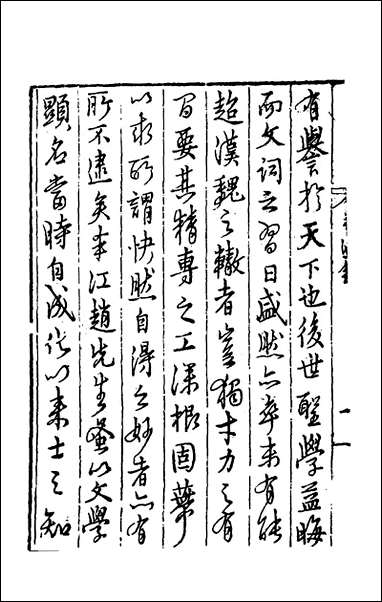 有譽於天下也後世聖學益晦
而文詞之習日盛然亦卒未有能
超漢魏之轍者豈獨才力之有
間要其精專之工深根固蔕
以求所謂快然自得之妙者亦有
所不逮矣本江趙先生蚤以文學
顯名當時自成化以來士之知